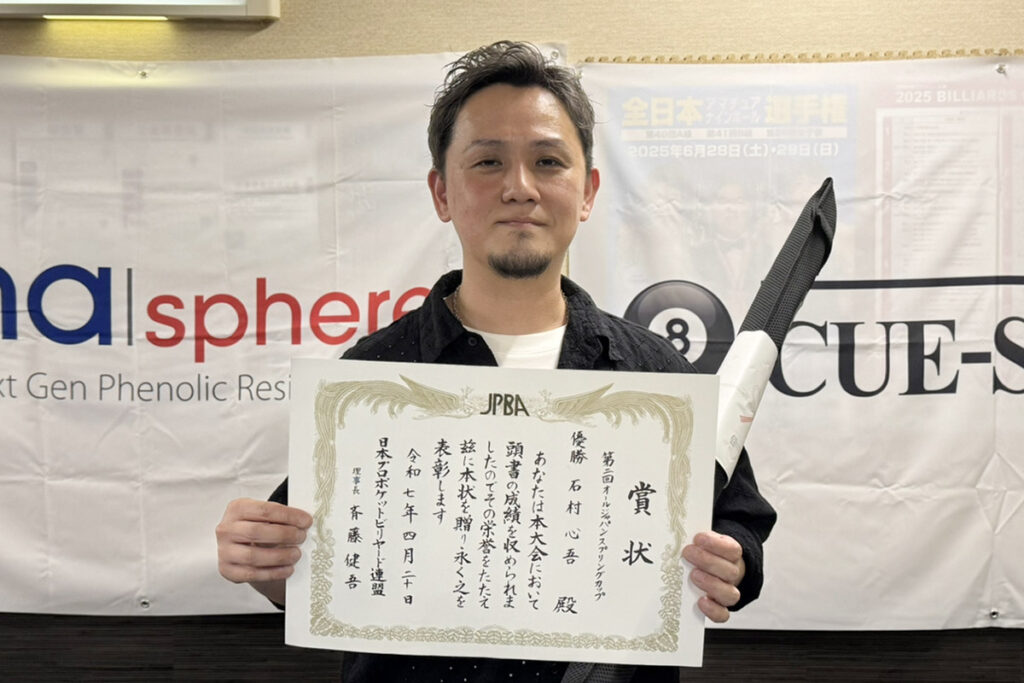 全日本アマチュアナインボール選手権
2025年6月28日(土)・29日(日)
2025 BILLIARDS
na|sphere
xt Gen Phenolic Resi
8
CUE-S
JPBA
賞状
第二回オールジャパンスプリングカップ
優勝 石村心吾 殿
あなたは本大会において
頭書の成績を収められま
したのでその栄誉をたたえ
玆に本状を贈り永く之を
表彰します
令和七年四月二十日
日本プロポケットビリヤード連盟
理事長 斉藤健吾